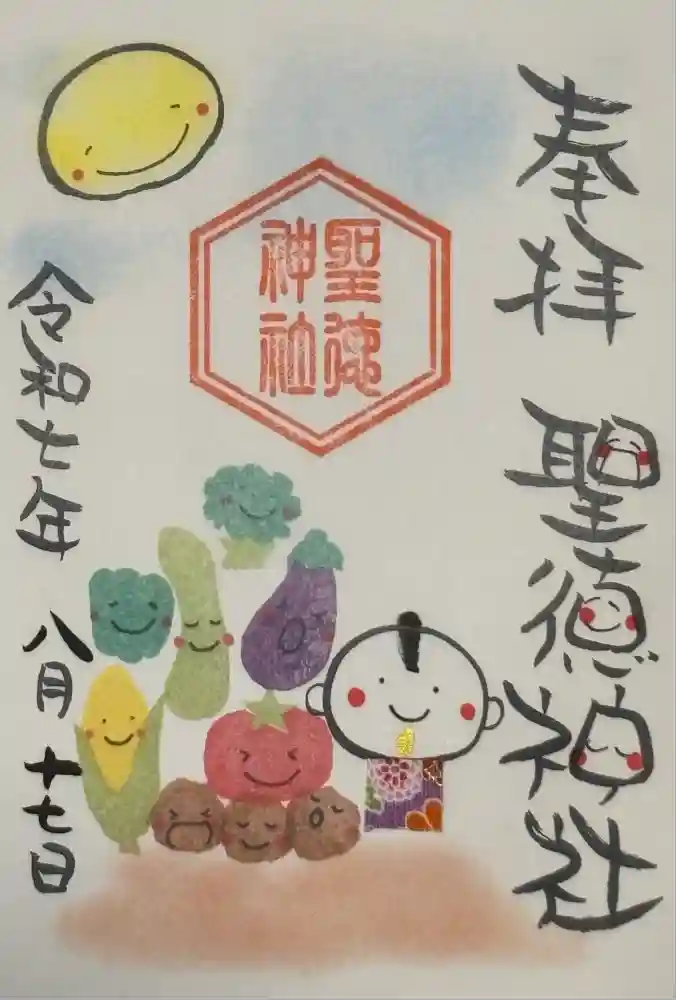 奉拝
聖徳神社
聖徳
神社
令和七年
八月十七日